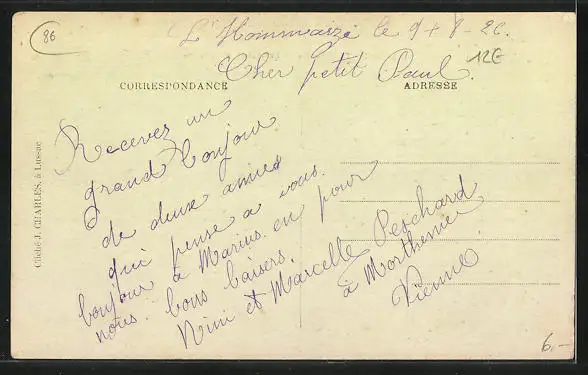 86
L'Hommaizé le 9 + 8 - 26.
12E
Cher petit Paul.
CORRESPONDANCE
ADRESSE
Recevez un
grand bonjour
de deux amies
qui pense a vous.
bonjour à Marius. en pour
nous. bons baisers.
Nini et Marcelle Perchard
à Morthemer
Vienne
Cliché J. CHARLES, à Lussac
6.-